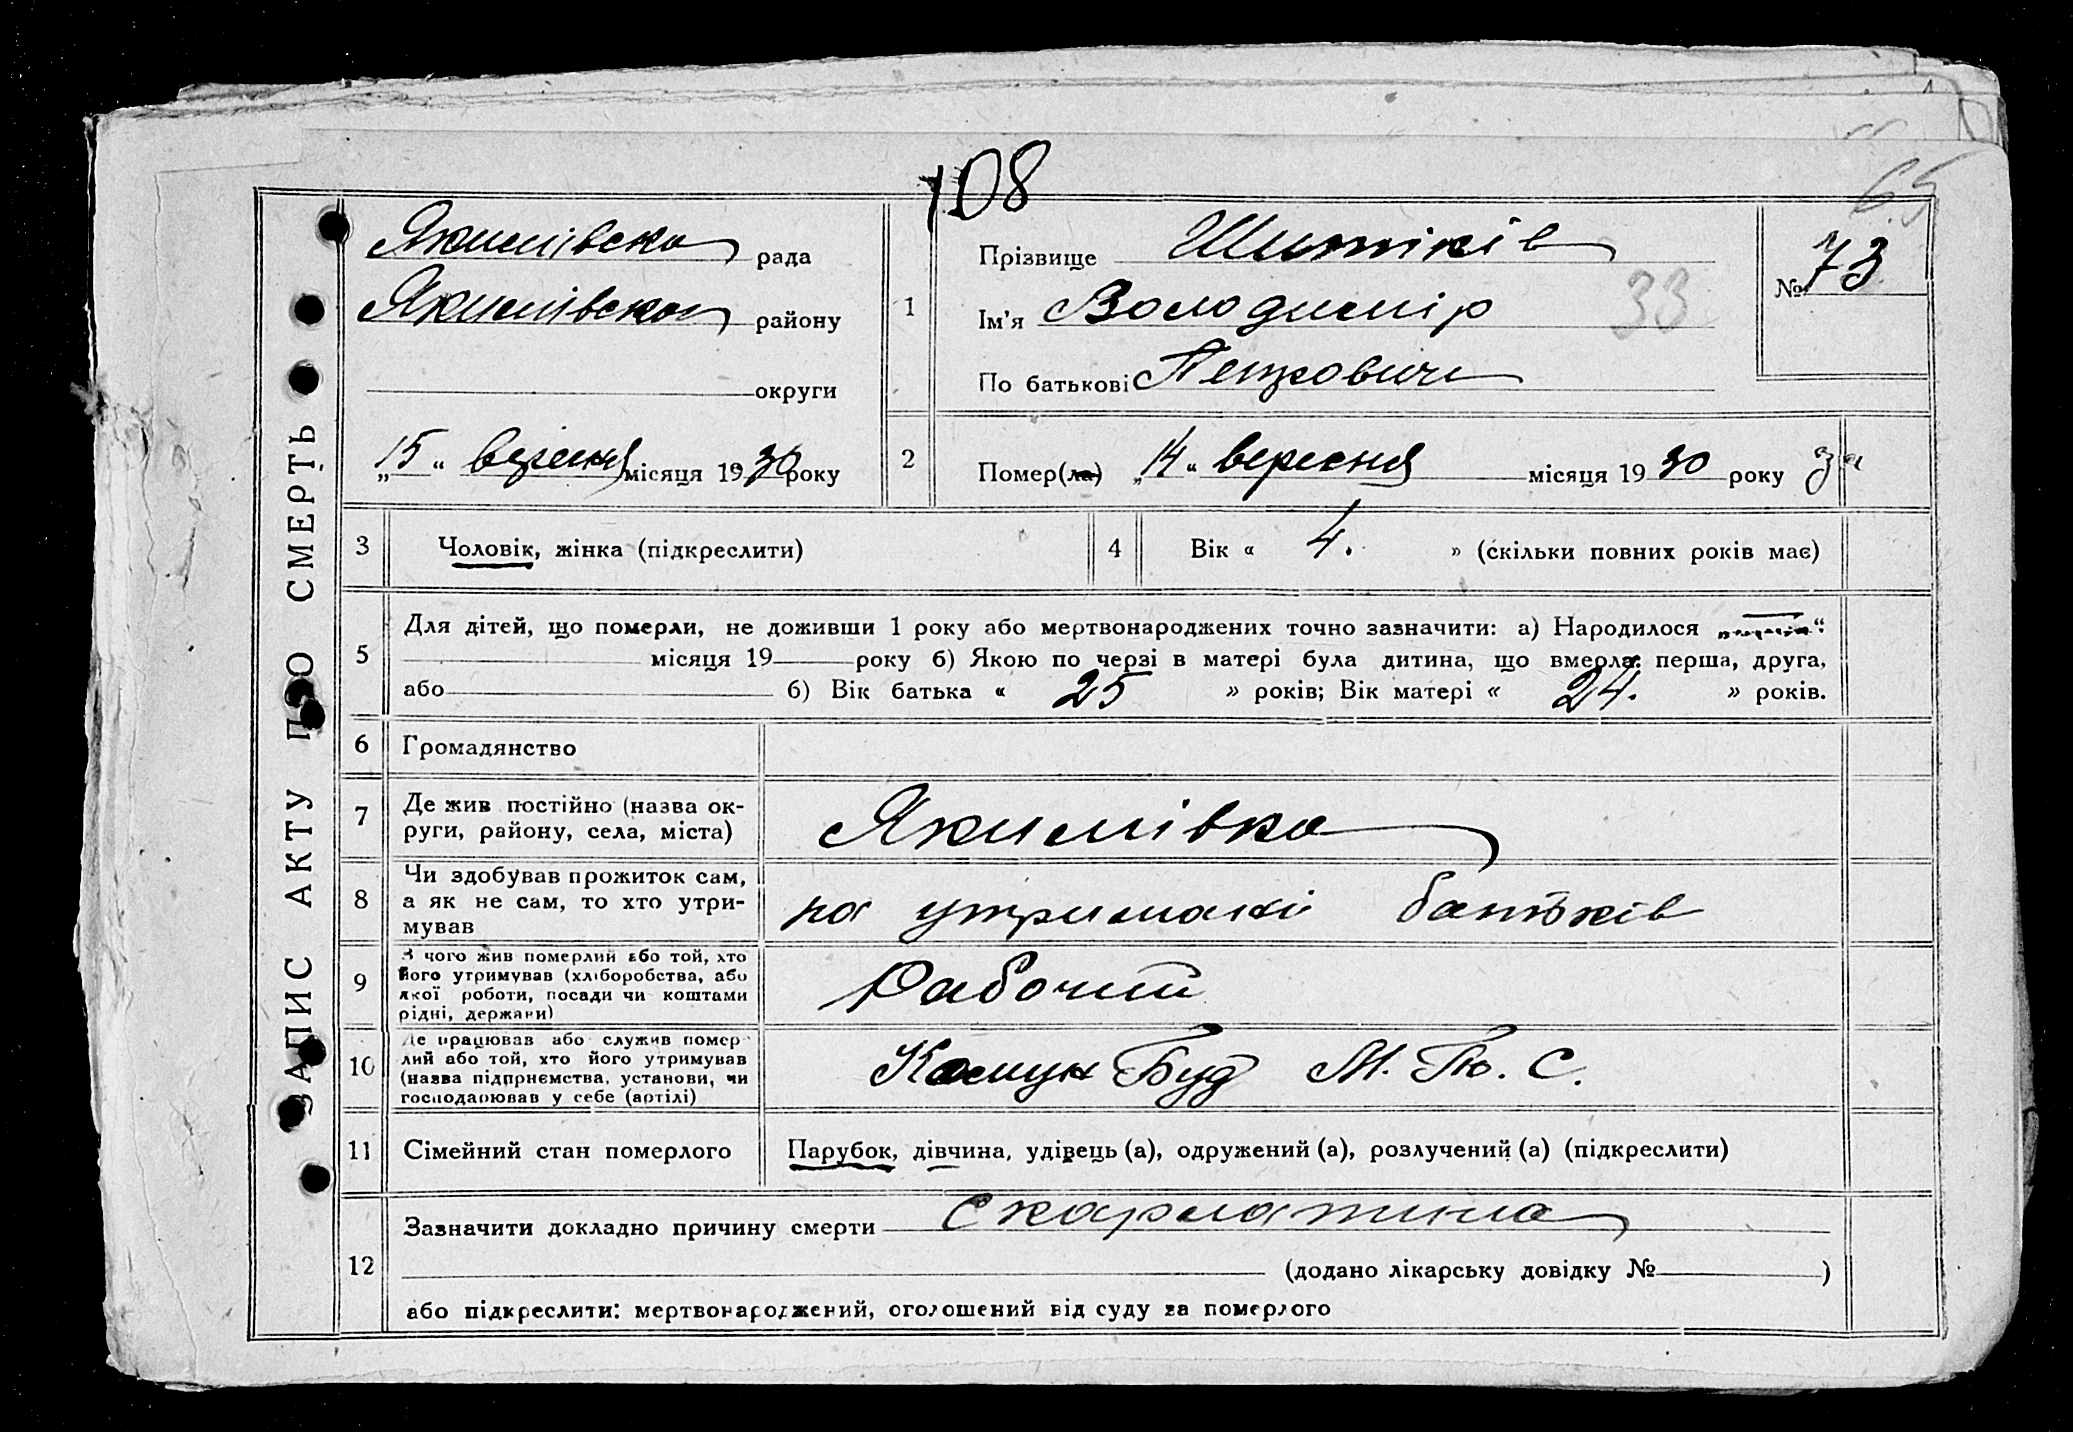 108
65
ЗАПИС АКТУ ПРО СМЕРТЬ
Якимівска рада
Якимівского району
округи
„15“ вересня місяця 1930 року
1
Прізвище Шитіків
Ім'я Володимір 33
По батькові Петрович
№ 73
2
Помер(ла) „14“ вересня місяця 1930 року
3 Чоловік, жінка (підкреслити)
4 Вік « 4. » (скільки повних років має)
5
Для дітей, що померли, не доживши 1 року або мертвонароджених точно зазначити: а) Народилося „ “
місяця 19 року б) Якою по черзі в матері була дитина, що вмерла: перша, друга,
або б) Вік батька « 25 » років; Вік матері « 24. » років.
6 Громадянство
7 Де жив постійно (назва ок-
руги, району, села, міста)
Якимівка
8 Чи здобував прожиток сам,
а як не сам, то хто утри-
мував
на утримані батьків
9 З чого жив померлий або той, хто
його утримував (хліборобства, або
якої роботи, посади чи коштами
рідні, держави)
Рабочий
10 Де працював або служив помер-
лий або той, хто його утримував
(назва підприємства, установи, чи
господарював у себе (артілі)
Комун Буд М. Т. С.
11 Сімейний стан померлого
Парубок, дівчина, удівець (а), одружений (а), розлучений (а) (підкреслити)
12
Зазначити докладно причину смерти скарлатина
(додано лікарську довідку № )
або підкреслити: мертвонароджений, оголошений від суду за померлого